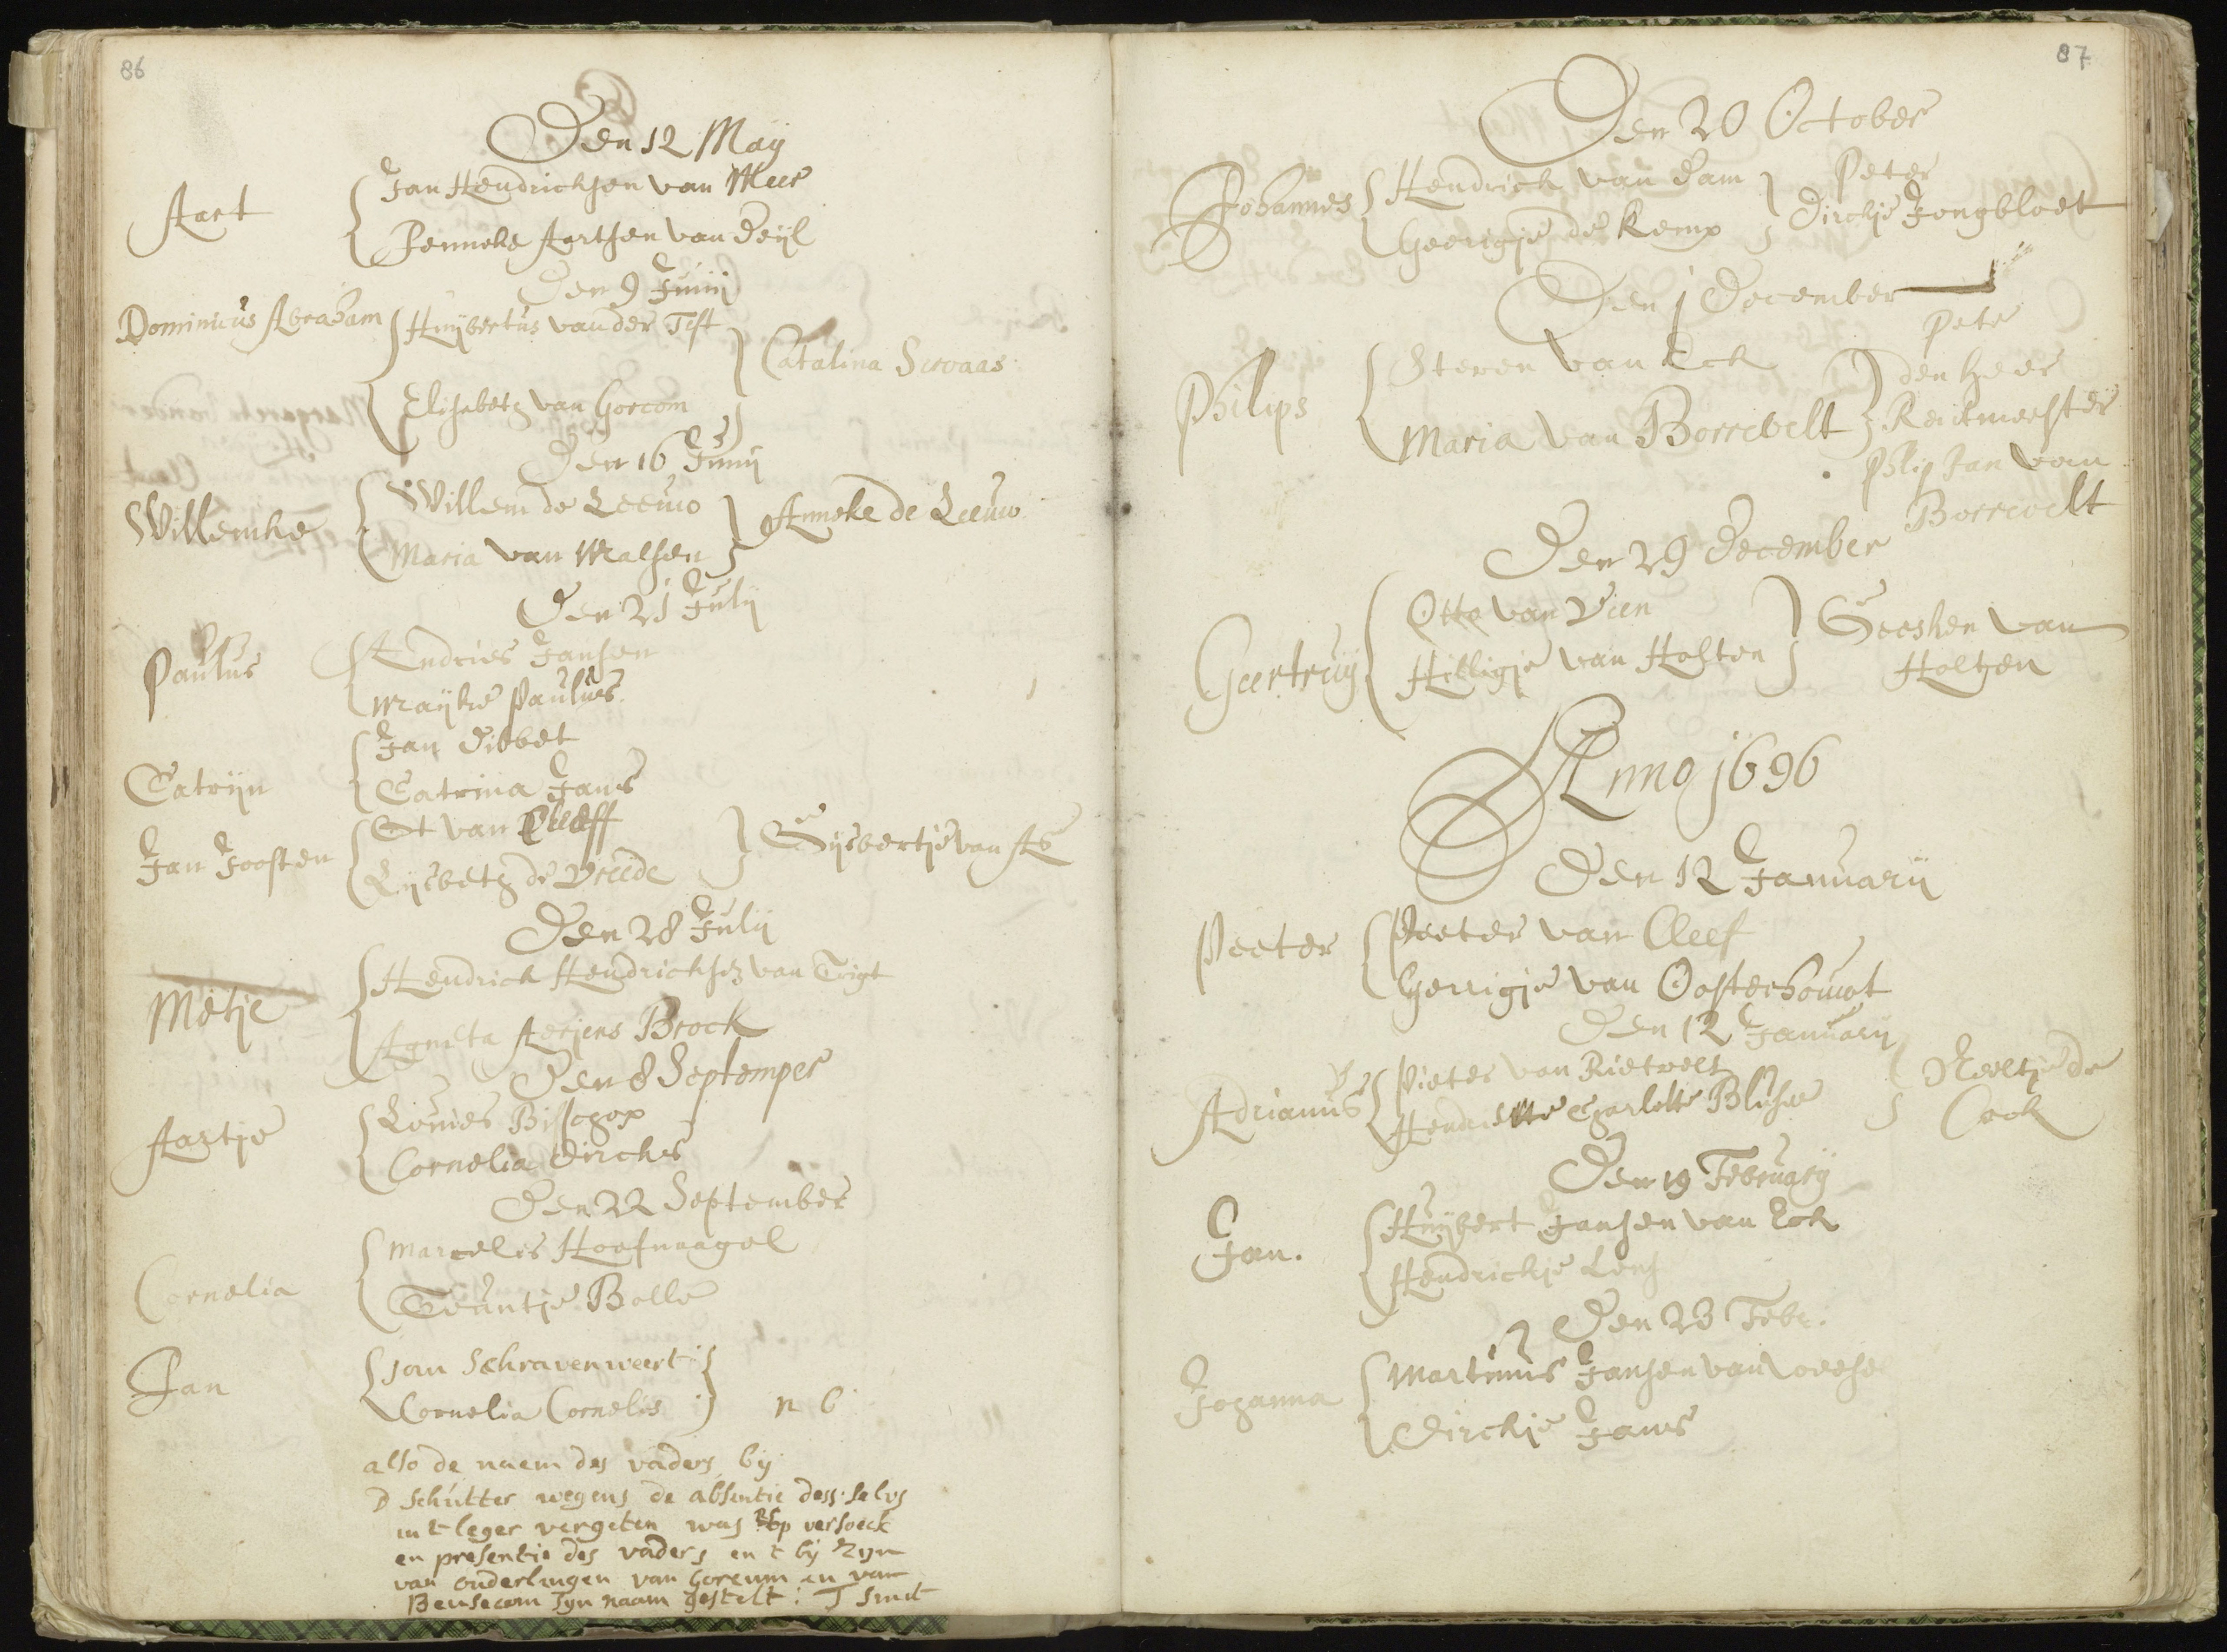 86
Den 12 Maÿ
Aart
Jan Hendricksen van Meer
Jenneke Aertsen van Deÿl
Den 9 Junÿ
Dominicus Abraham
Huÿbertus vander Tist
Catalina Servaas
Elisabeth van Gorcom
Den 16 Junÿ
Willemke
Willem de Leeuw
Anneke de Leeuw
Maria van Malsen
Den 21 Julÿ
Paulus
Andries Jansen
Maÿke Paulus
Catrÿn
Jan Dibbet
Catrina Jans
Jan Joosten
Ot van Cleeff
Gÿsbertje van As
Lÿsbeth de Vreede
Den 28 Julÿ
Metje
Hendrick Hendricksz van Trigt
Agneta Aerjens Brock
Den 8 Septemper
Aartje
Louies Bisschop
Cornelia Dircks
Den 22 September
Cornelia
Marcelis Hoefnaagel
Teuntje Bolle
Jan
Jan Schravenweert
Cornelia Cornelis
n b
also de naem des vaders bÿ
D Schutter wegens de absentie dess. selvs
in t leger vergeten was op versoeck
en presentie des vaders en t bÿ zÿn
van ouderlingen van Gorcum en van
Beusecom sÿn naam gestelt: J Smit
87
Den 20 October
Johannes
Hendrick van Dam
Peter
Geerigje de Kemp
Dirckje Jongbloet
Den 1 December
Pete
Philips
Steven van Eck
den heer
Maria van Borrevelt
Reitmeester
Philip Jan van
Borrevelt
Den 29 December
Geertruÿ
Otto van Vien
Geesken van
Hilligje van Holten
Holten
Anno 1696
Den 12 Januarÿ
Peeter
Peeter van Cleef
Gerrigje van Oosterhouwt
Den 12 Januarÿ
Adrianus
Pieter van Rietvelt
Neeltje de
Hendrikette Charlotte
Cock
Den 19 Februarÿ
Jan.
Huÿbert Jansen van Eck
Hendrickje Lens
Den 23 Feb.
Johanna
Martinus Jansen van
Dirckje Jans